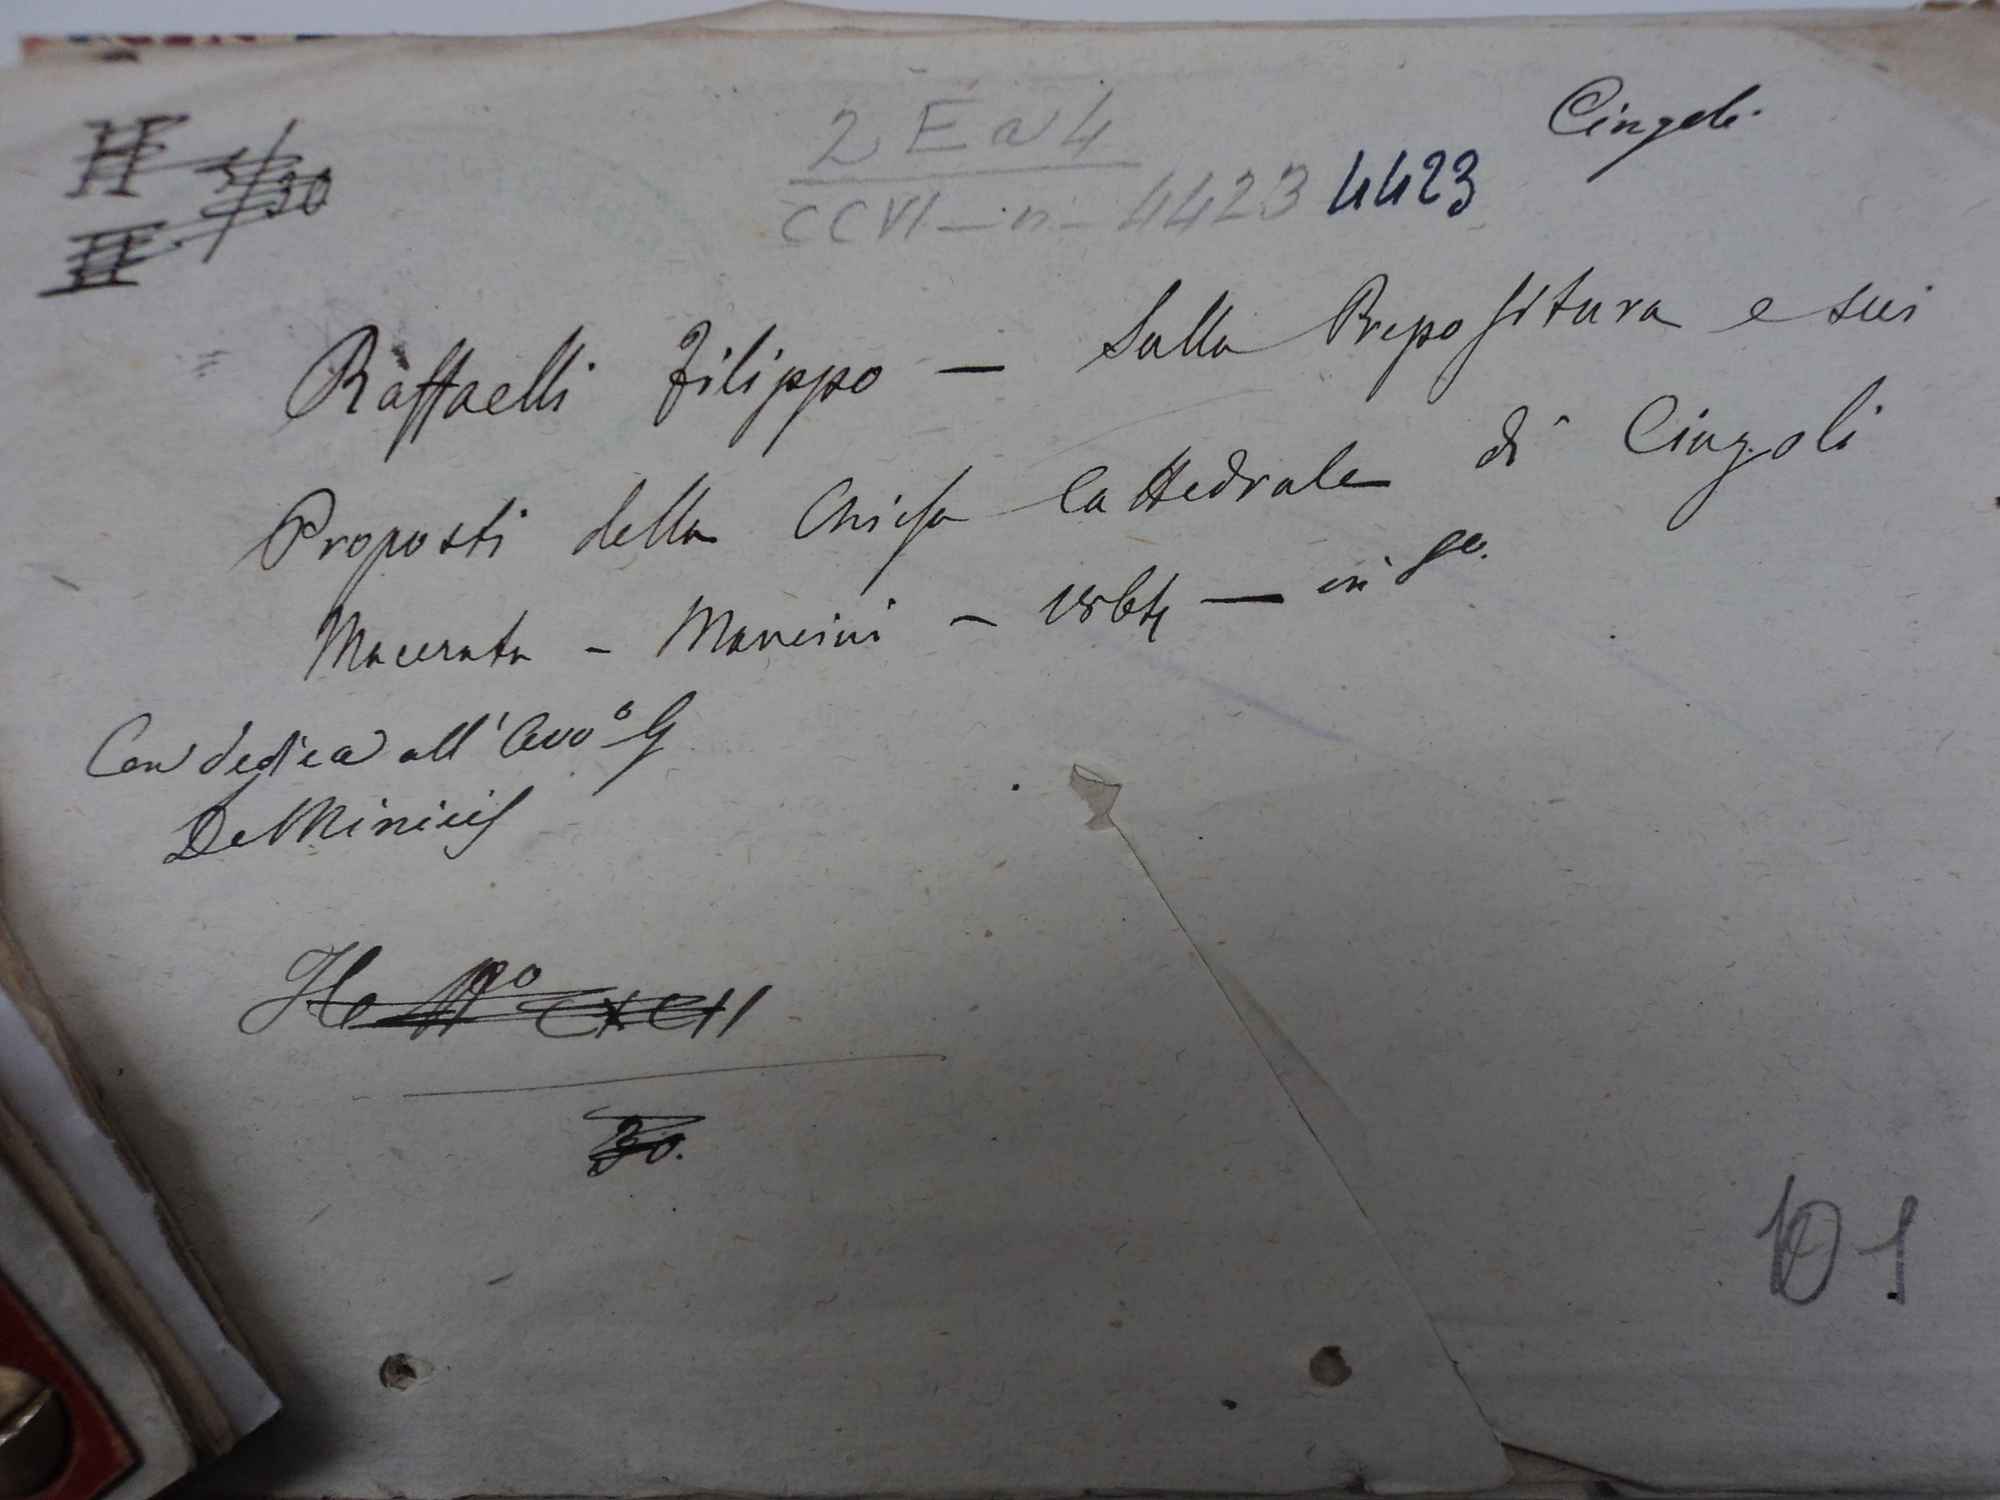 Cingoli
2 E a 4
CCVI - n - 4423 4423
II 3/30
II
Raffaelli Filippo — Sulla Prepositura e sui
Proposti della Chiesa Cattedrale di Cingoli
Macerata - Mancini - 1864 — in 8º.
Con dedica all'Avvº G
De Minicis
CXCII
30.
10 1